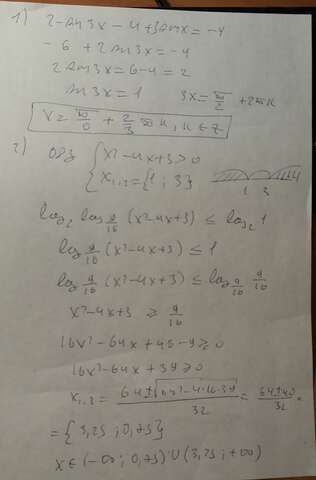 1) 2-sin3x-4+3sin x=-4
-6+2sin3x=-4
2sin3x=6-4=2
sin3x=1 3x=π/2+2πk
x=π/6+2/3 πk, k∈Z
2) ОДЗ {x²-4x+3>0
{x₁,₂={1;3} 1 3
log₂ log_{9/16}(x²-4x+3)≤log₂1
log_{9/16}(x²-4x+3)≤1
log_{9/16}(x²-4x+3)≤log_{9/16} 9/16
x²-4x+3≥9/16
16x²-64x+48-9≥0
16x²-64x+39≥0
x₁,₂=(64±√(64²-4·16·39))/32=(64±40)/32=
={3,25;0,75}
x∈(-∞;0,75)∪(3,25;+∞)